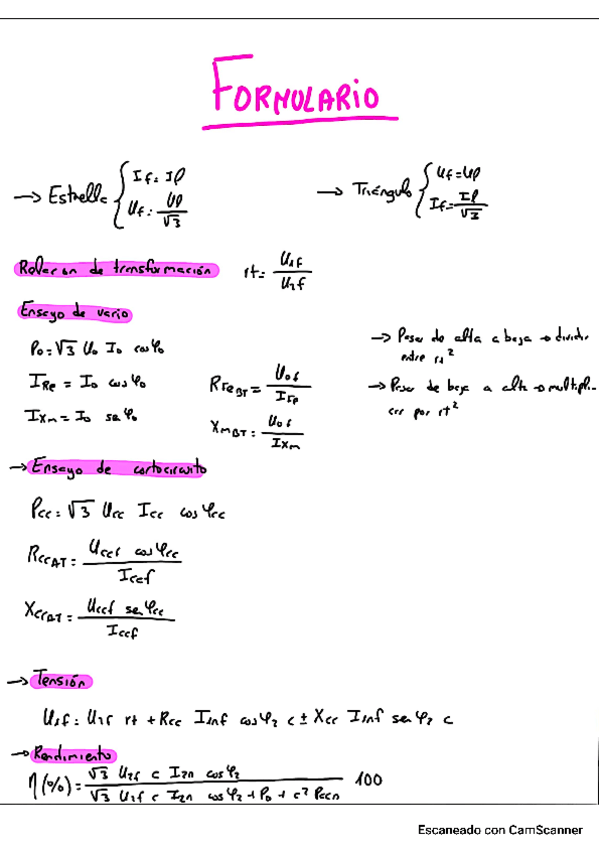 FORMULARIO
→ Estrella { If = Il
Uf = Ul/√3
→ Triángulo { Uf = Ul
If = Il/√3
Relación de transformación rt = U1f / U2f
Ensayo de vacio
P0 = √3 U0 I0 cos φ0
IRe = I0 cos φ0
IXm = I0 sen φ0
RFe BT = U0f / IFe
Xm BT = U0f / IXm
→ Pasar de alta a baja → dividir
entre rt²
→ Pasar de baja a alta → multipli-
car por rt²
→ Ensayo de cortocircuito
Pcc = √3 Ucc Icc cos φcc
Rcc AT = Uccf cos φcc / Iccf
Xcc AT = Uccf sen φcc / Iccf
→ Tensión
U1f = U2f rt + Rcc I1nf cos φ2 c ± Xcc I1nf sen φ2 c
→ Rendimiento
η(%) = √3 U2f c I2n cos φ2 / √3 U2f c I2n cos φ2 + P0 + c² Pccn 100
Escaneado con CamScanner